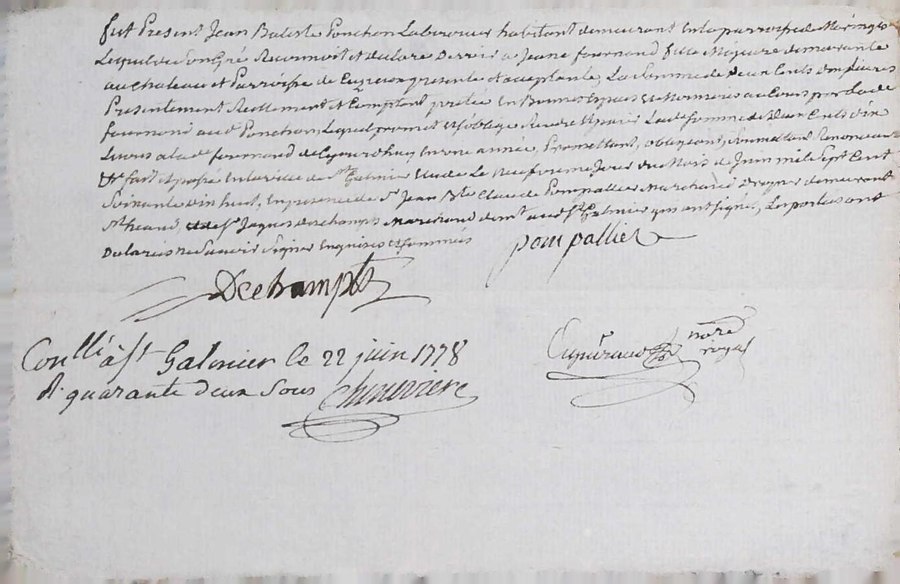 fut Present Jean Batiste Ponchon Laboureur habitant demeurant en la parroisse de
Lequel de son gré Reconnoit et declare Devoir a Jeane fournand fille Majeure demeurante
au chateau et Parroisse de presente et acceptante, La Somme de Deux Cents dix Livres
Presentement Reellement et Comptant pretée en Bonnes Espèces et Monnoies au Cours par la de
fournand aud. Ponchon, Lequel promet et s'oblige Rendre et payer Lad. somme de Deux Cents dix
Livres a lad. fournand de en une année, Promettant, obligeant, Soumettant, Renonceant
fait et passé en la ville de St. Galmier Etude Le Neufvieme Jour du Mois de Juin mil Sept Cent
Soixante dix huit, En presence de Sr. Jean Bte. Claude Pompallier Marchand Drogier demeurant
St. heand, et de Sr. Jaques Deschamps Marchand demt. aud. St. Galmier qui ont signé, Les parties ont
Declaré ne Scavoir Signer Enquises et Sommées
pompallier
Dechampt
Conllé à St Galmier le 22 juin 1778
R. quarante deux Sous Chenevriere
nore
royal